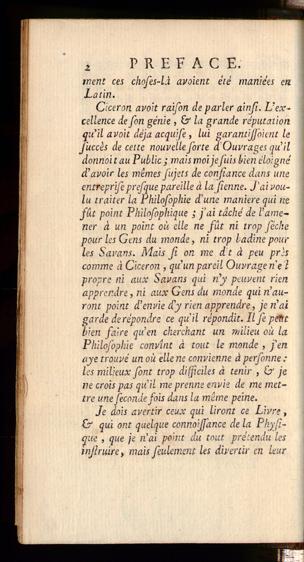 2 PREFACE.
ment ces choses-là avoient été maniées en
Latin.
Ciceron avoit raison de parler ainsi. L'ex-
cellence de son génie, & la grande réputation
qu'il avoit déja acquise, lui garantissoient le
succès de cette nouvelle sorte d'Ouvrages qu'il
donnoit au Public; mais moi je suis bien éloigné
d'avoir les mêmes sujets de confiance dans une
entreprise presque pareille à la sienne. J'ai vou-
lu traiter la Philosophie d'une maniere qui ne
fût point Philosophique; j'ai tâché de l'ame-
ner à un point où elle ne fût ni trop séche
pour les Gens du monde, ni trop badine pour
les Savans. Mais si on me d't à peu près
comme à Ciceron, qu'un pareil Ouvrage n'e t
propre ni aux Savans qui n'y peuvent rien
apprendre, ni aux Gens du monde qui n'au-
ront point d'envie d'y rien apprendre, je n'ai
garde de répondre ce qu'il répondit. Il se peut
bien faire qu'en cherchant un milieu où la
Philosophie convînt à tout le monde, j'en
aye trouvé un où elle ne convienne à personne:
les milieux sont trop difficiles à tenir, & je
ne crois pas qu'il me prenne envie de me met-
tre une seconde fois dans la même peine.
Je dois avertir ceux qui liront ce Livre,
& qui ont quelque connoissance de la Physi-
que, que je n'ai point du tout prétendu les
instruire, mais seulement les divertir en leur